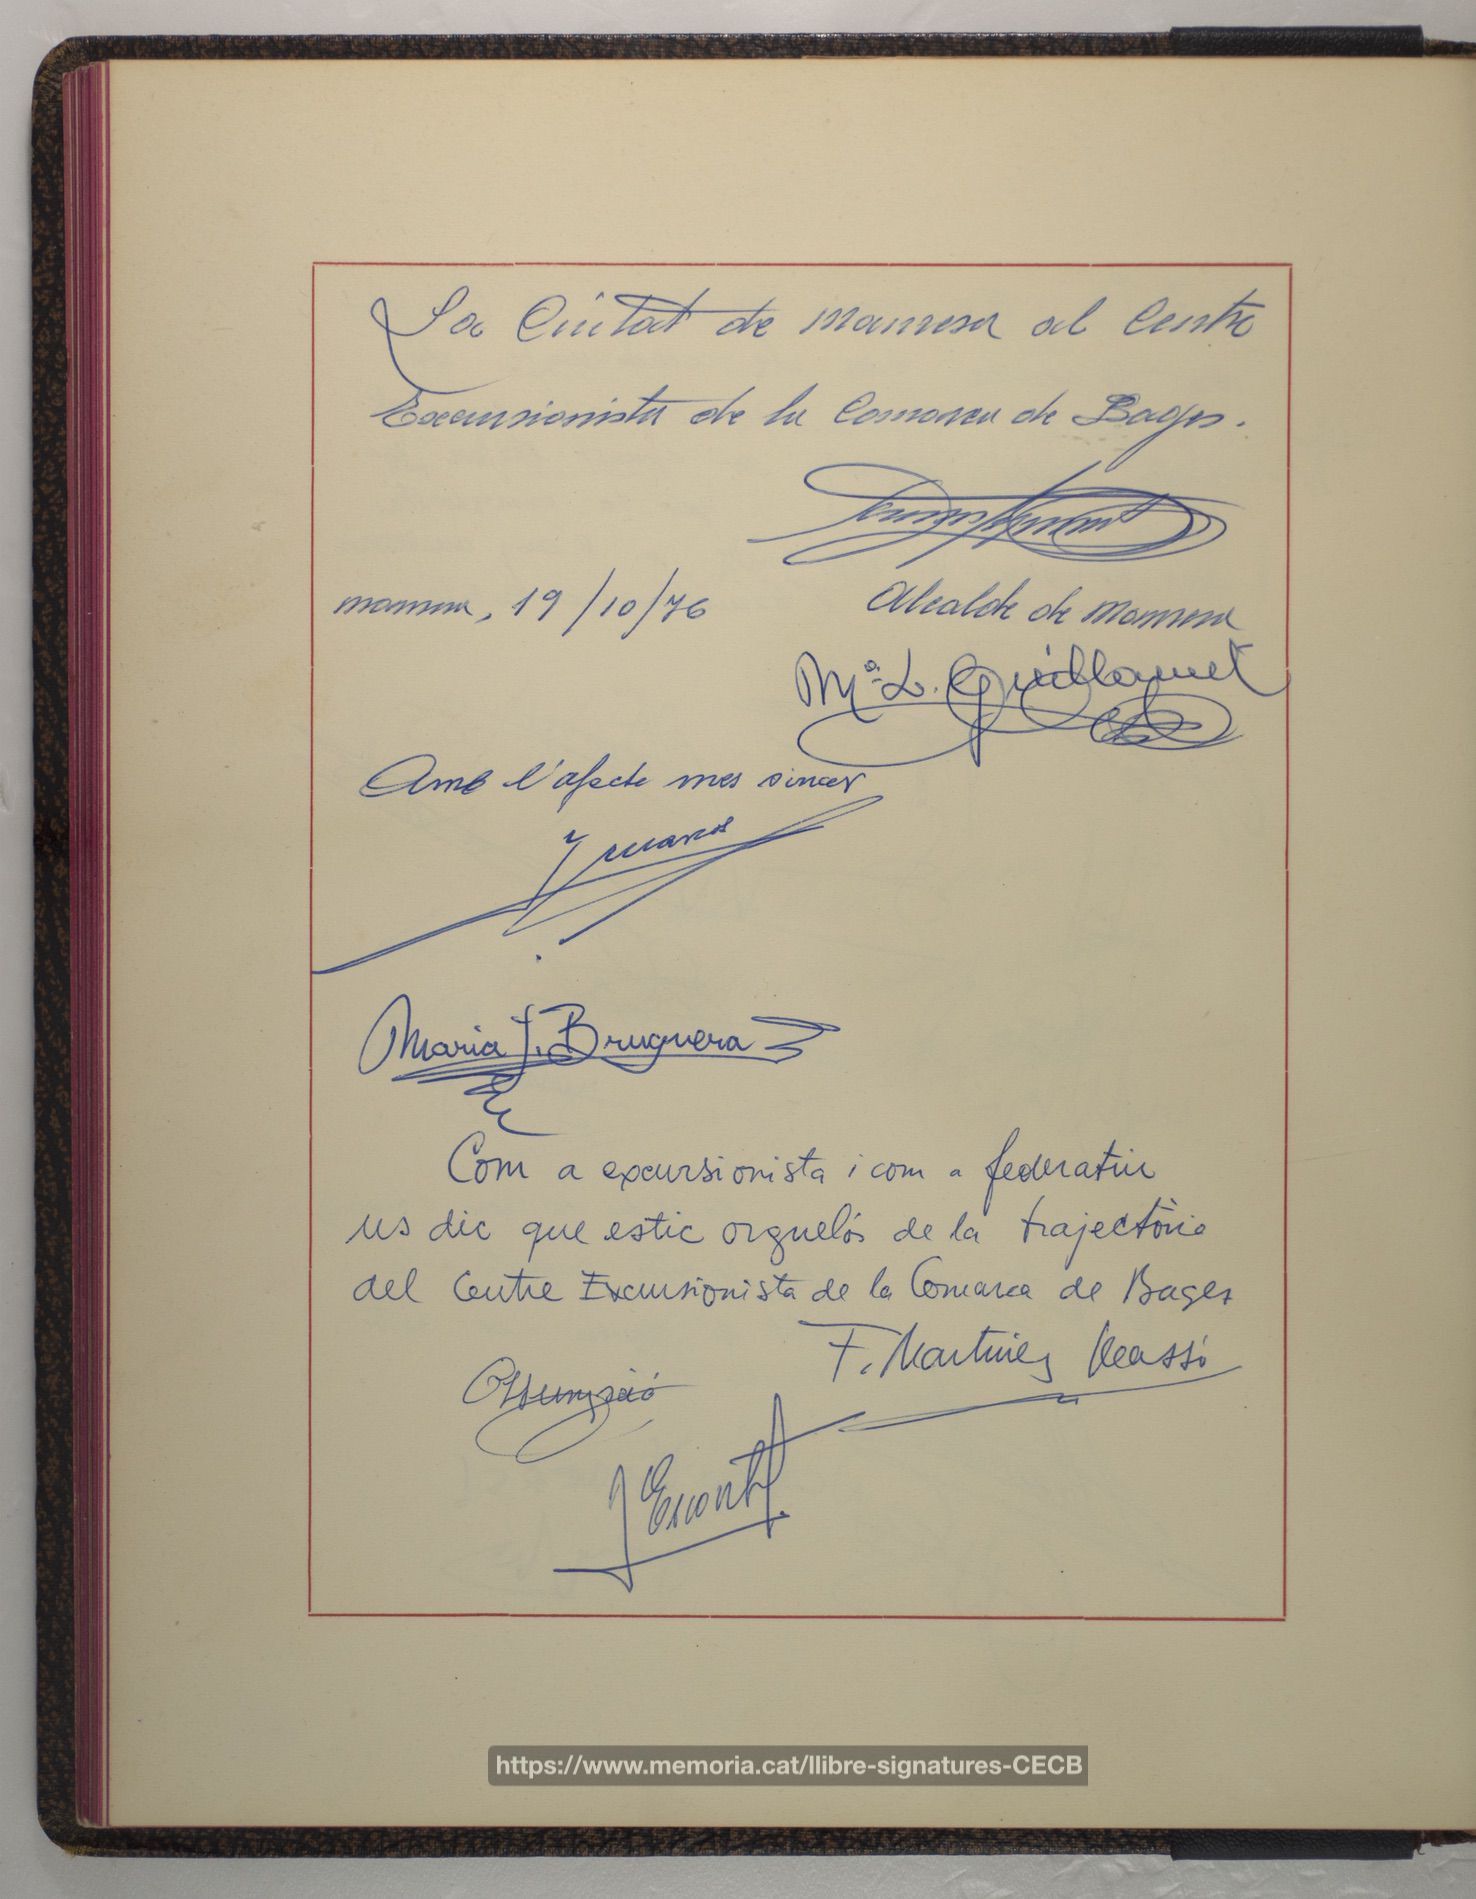 La Ciutat de Manresa al Centre
Excursionista de la Comarca de Bages.
Manresa, 19/10/76
Alcalde de Manresa
Mª L. Guillamet
Amb l'afecte mes sincer
Maria J. Bruguera
Com a excursionista i com a federatiu
us dic que estic orguelós de la trajectòria
del Centre Excursionista de la Comarca de Bages
F. Martínez Massó
Assumpció
https://www.memoria.cat/llibre-signatures-CECB